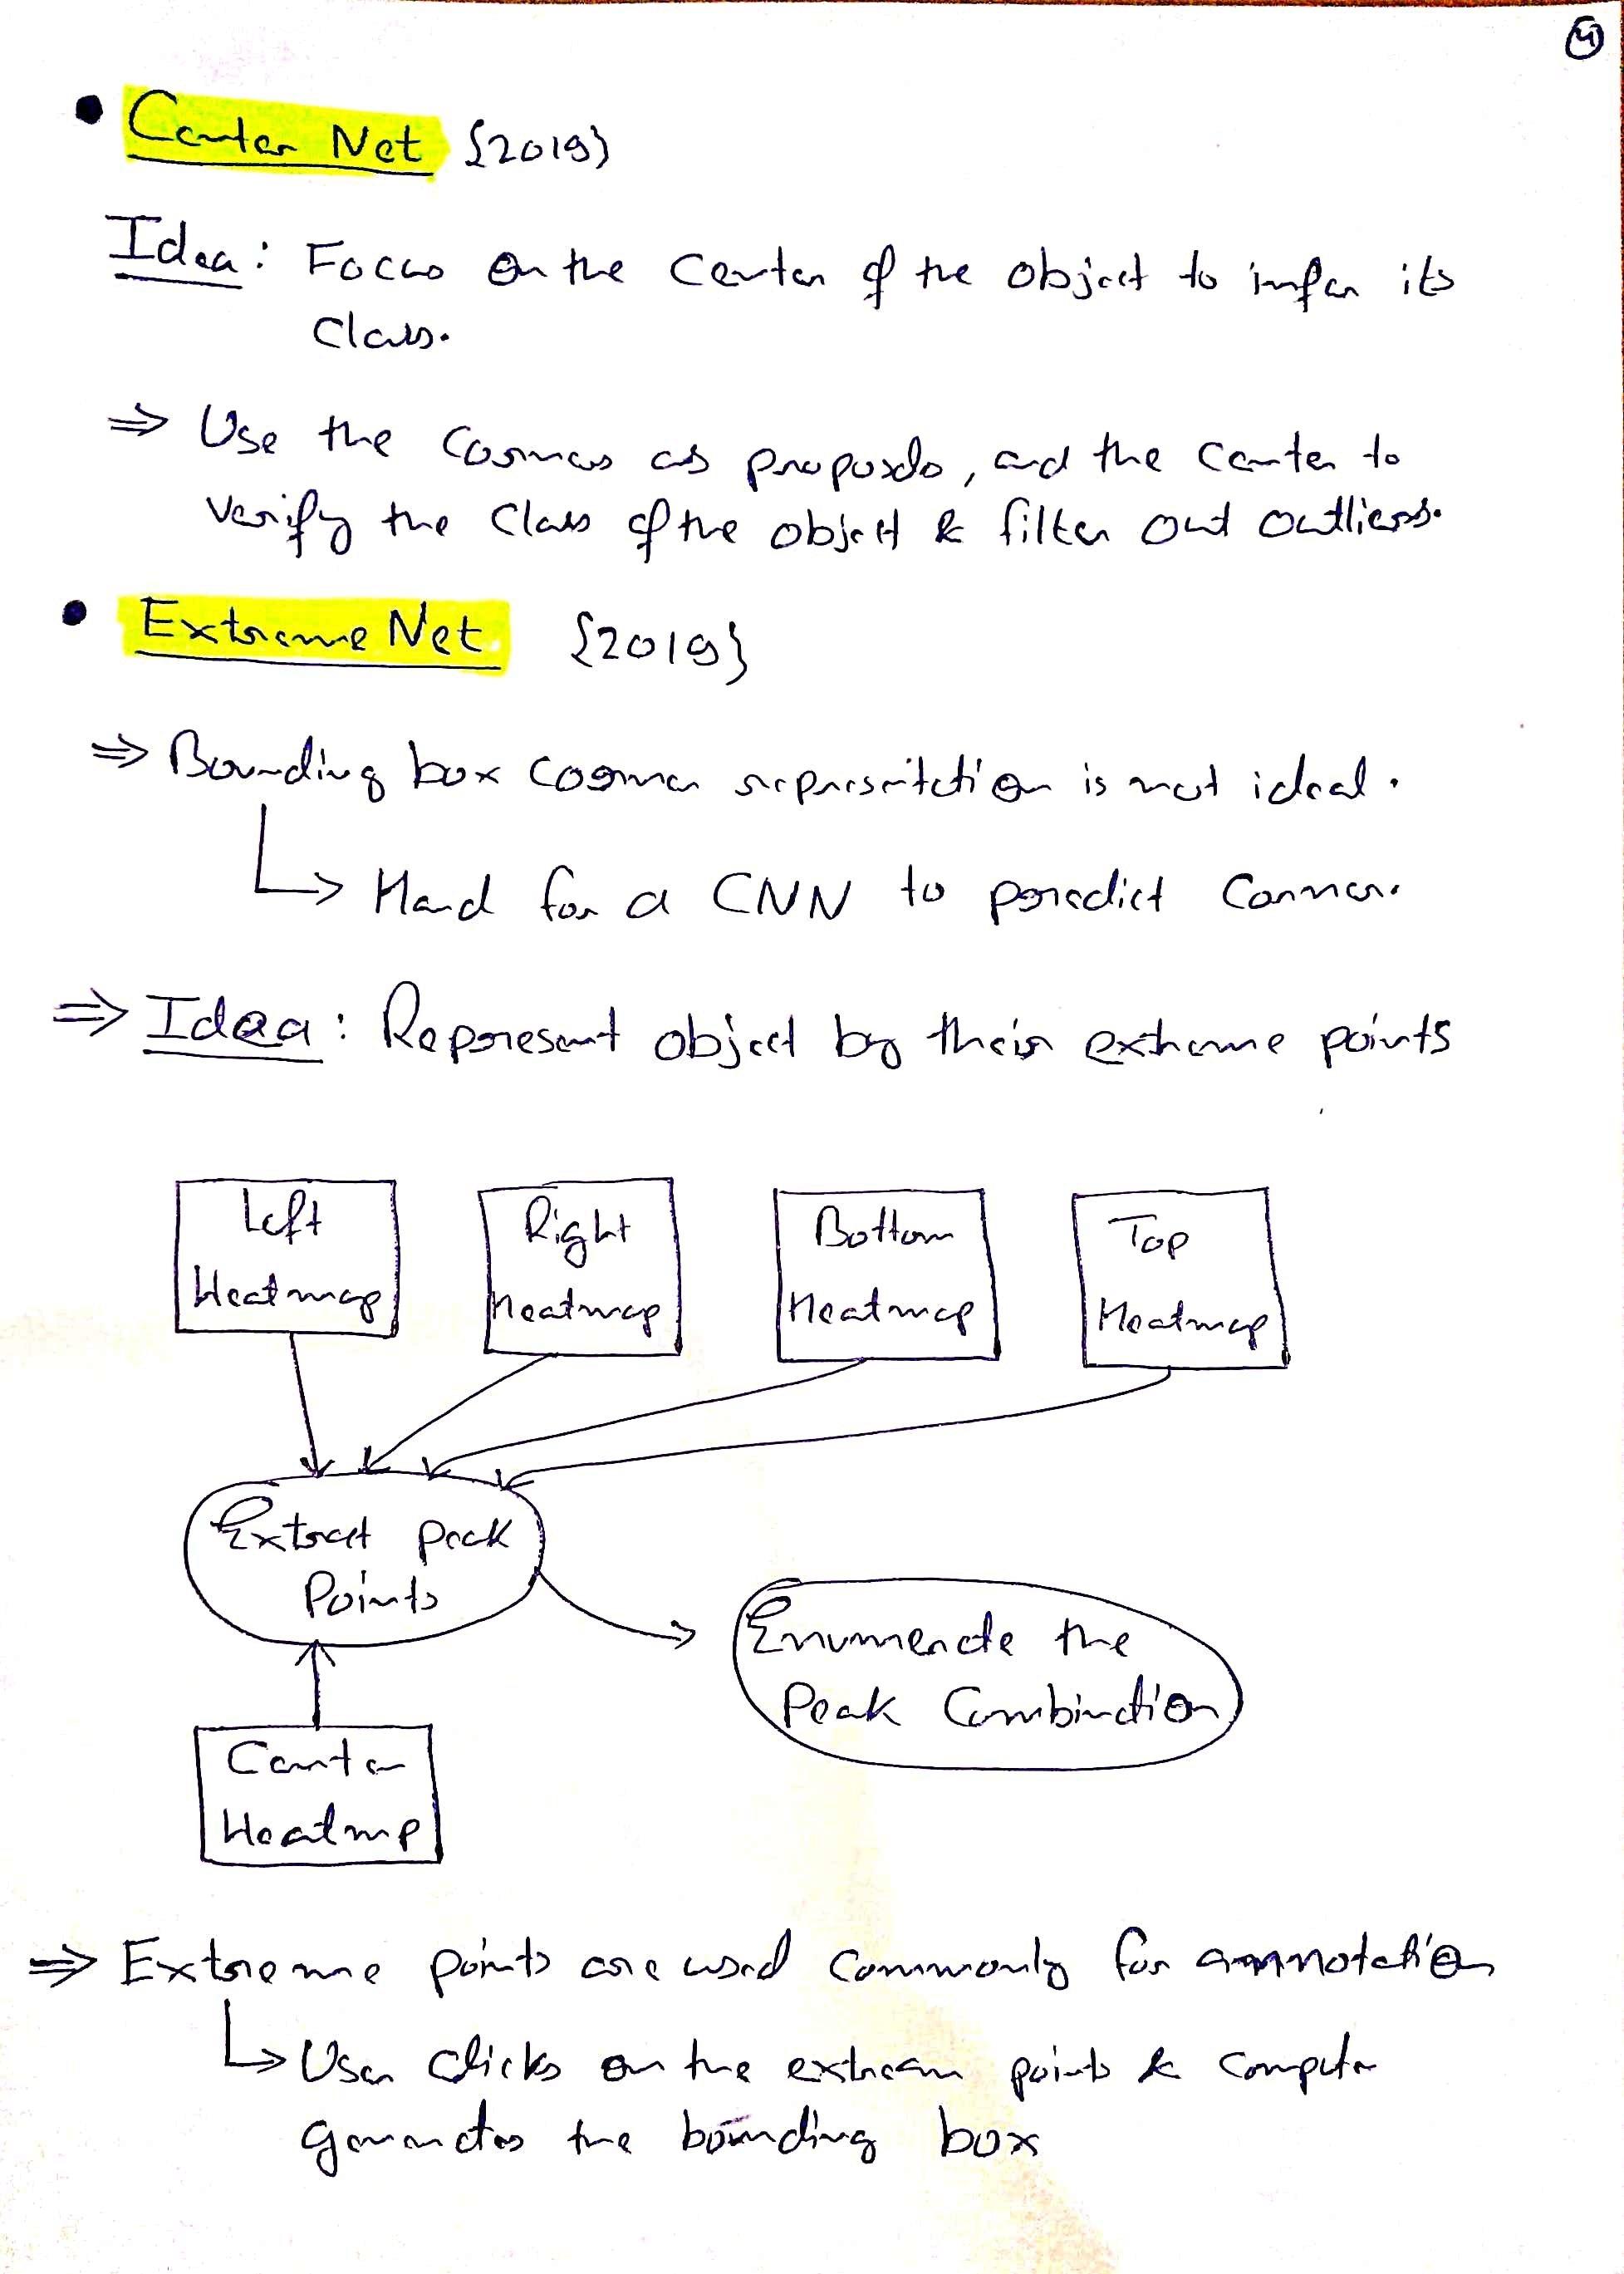 4
• Center Net {2019}
Idea: Focus on the Center of the object to infer its
Class.
⇒ Use the Corners as proposals, and the center to
verify the Class of the object & filter out outliers.
• Extreme Net {2019}
⇒ Bounding box corner representation is not ideal.
↳ Hard for a CNN to predict Corner.
⇒ Idea: Represent object by their extreme points
Left
Heatmap
Right
Heatmap
Bottom
Heatmap
Top
Heatmap
Extract peak
Points
Enumerate the
Peak Combination
Center
Heatmp
⇒ Extreme points are used commonly for annotation
↳ User clicks on the extream points & computer
generates the bounding box